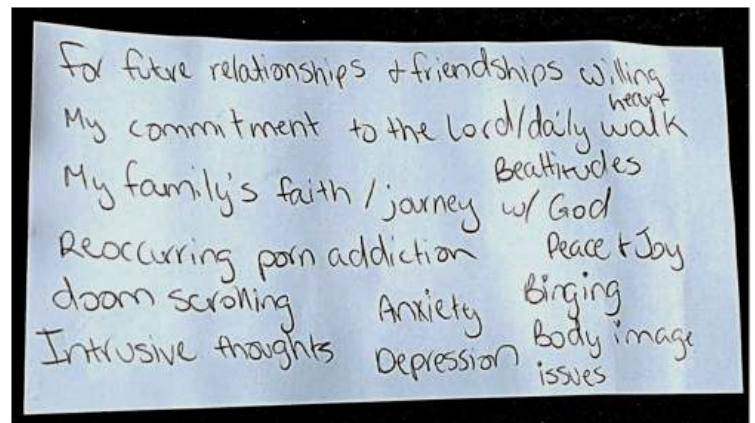 For future relationships + friendships willing
heart
My commitment to the Lord/daily walk
Beattitudes
My family's faith / journey w/ God
Reoccurring porn addiction Peace + Joy
doom scrolling Anxiety Binging
Intrusive thoughts Depression Body image
issues